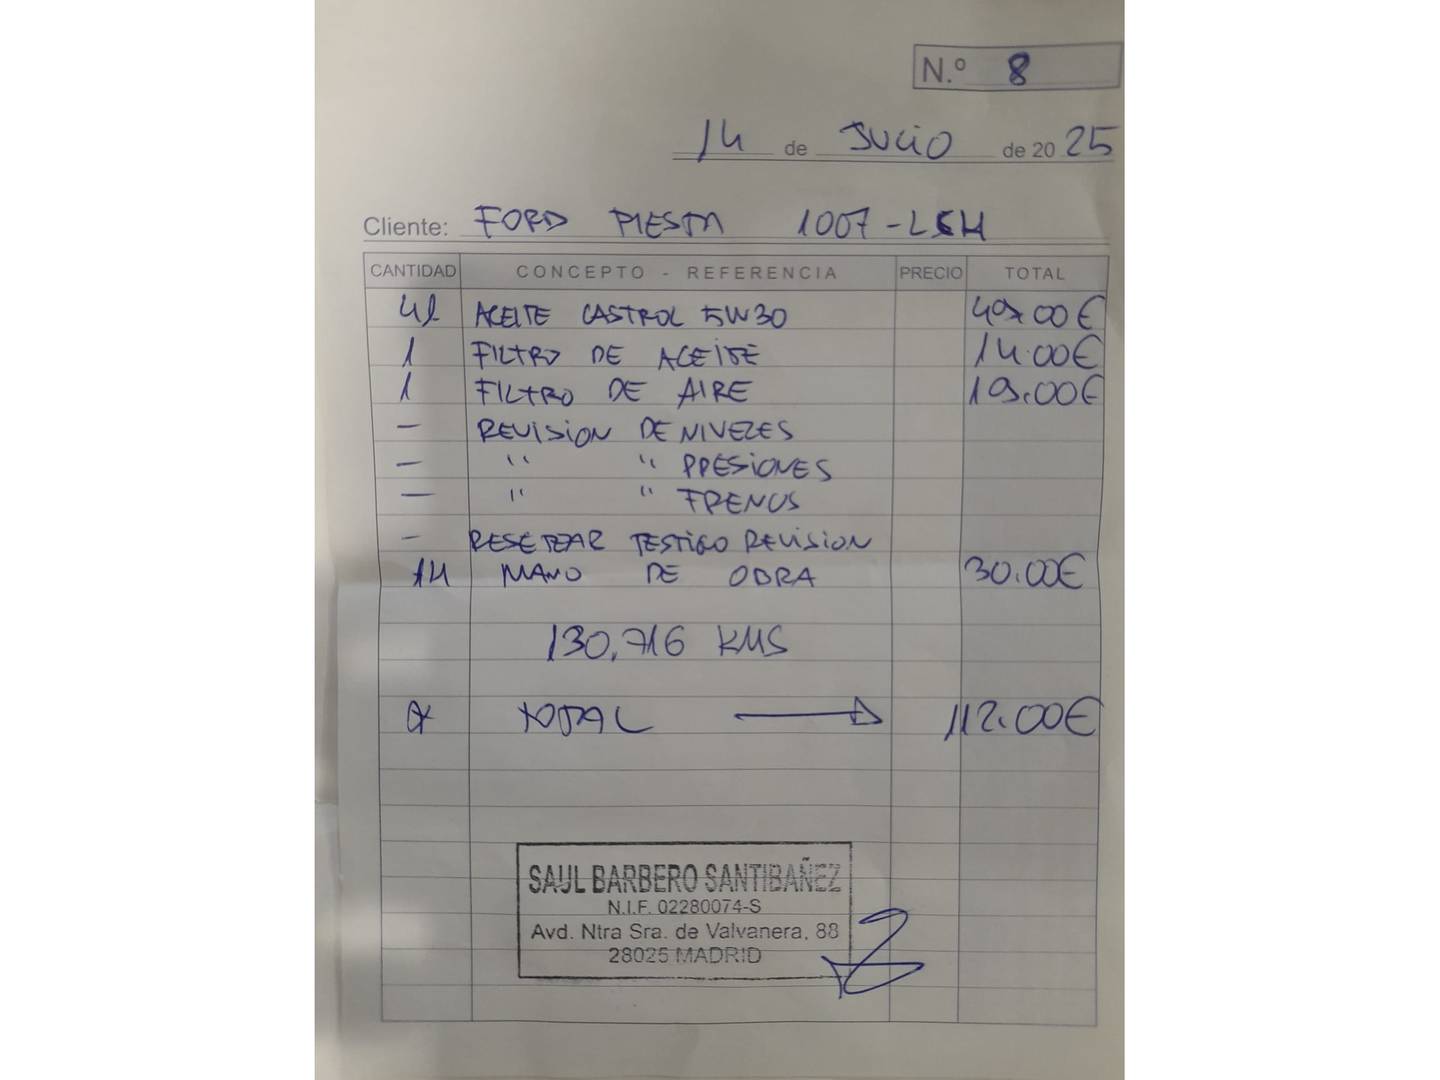 N.º 8
14 de JULIO de 2025
Cliente: FORD FIESTA 1007-LSH
CANTIDAD CONCEPTO - REFERENCIA PRECIO TOTAL
4l ACEITE CASTROL 5W30 49.00€
1 FILTRO DE ACEITE 14.00€
1 FILTRO DE AIRE 19.00€
- REVISION DE NIVELES
- " " PRESIONES
- " " FRENOS
- RESETEAR TESTIGO REVISION
1H MANO DE OBRA 30.00€
130,716 KMS
TOTAL → 112.00€
SAUL BARBERO SANTIBAÑEZ
N.I.F. 02280074-S
Avd. Ntra Sra. de Valvanera, 88
28025 MADRID